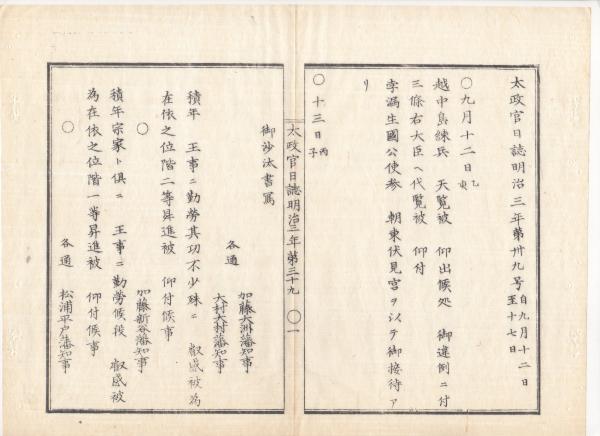 太政官日誌明治三年第卅九号 自九月十二日 至十七日
〇九月十二日 乙亥
越中島練兵 天覧被 仰出候処 御違例ニ付
三條右大臣ヘ代覧被 仰付
孛漏生國公使参 朝東伏見宮ヲ以テ御接待ア
リ
〇十三日 丙子
太政官日誌明治三年第三十九 〇一
御沙汰書写
各通 加藤大洲藩知事
大村大村藩知事
積年 王事ニ勤労其功不少殊ニ 叡感被為
在依之位階二等昇進被 仰付候事
〇 加藤新谷藩知事
積年宗家ト倶ニ 王事ニ勤労候段 叡感被
為在依之位階一等昇進被 仰付候事
〇 各通 松浦平戸藩知事